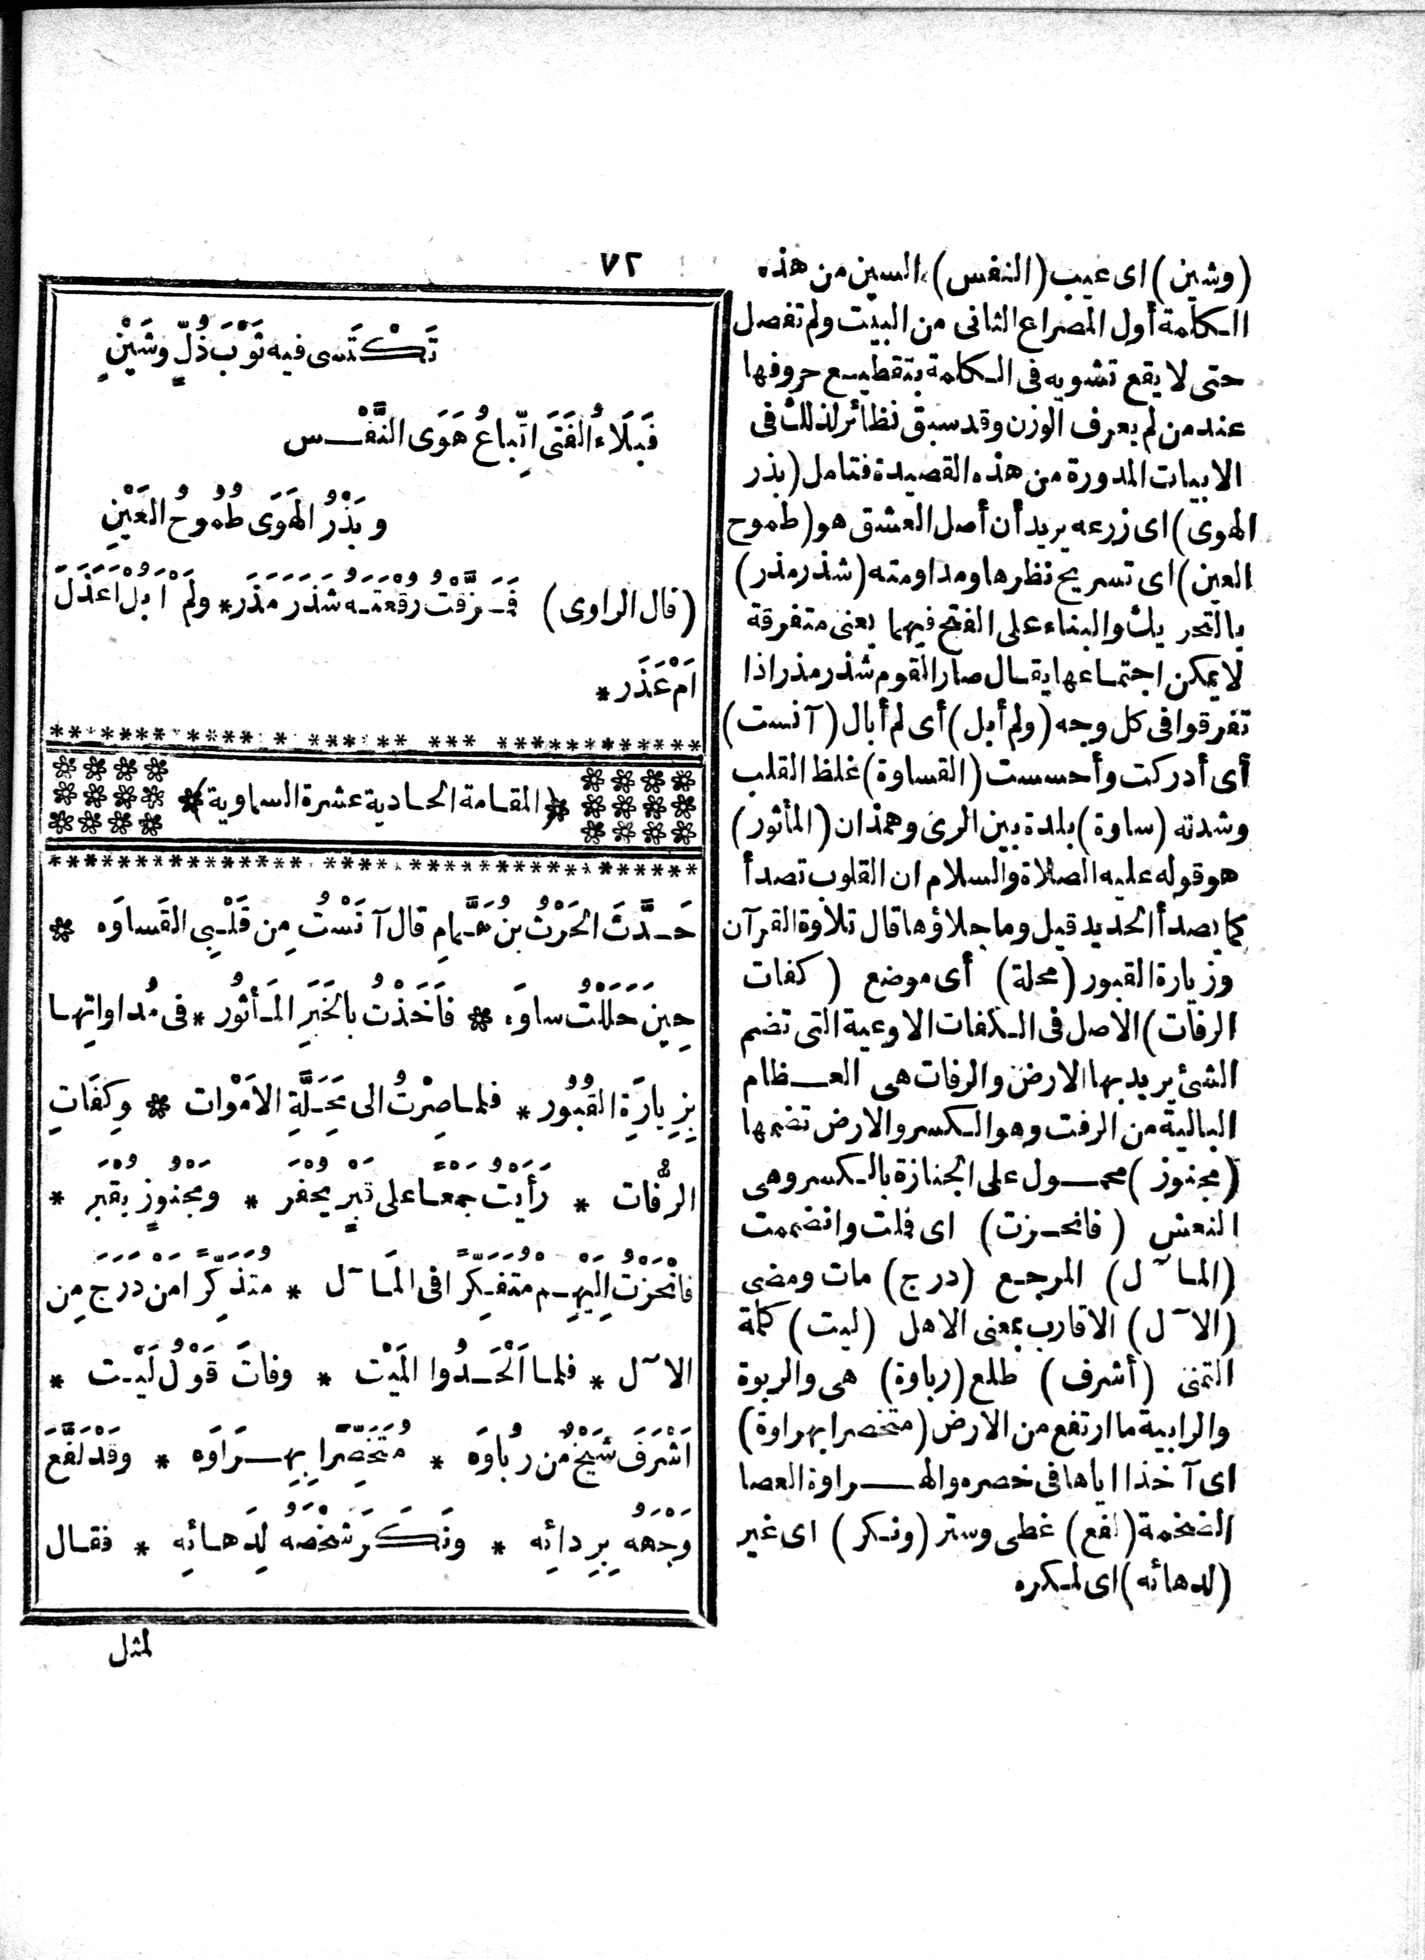 ٧٢
تَكْتَسى فيه ثَوْبَ ذُلٍّ وشَيْنِ
فَبَلَاءُ الفَتَى اتِّباعُ هَوَى النَّفْس
وبَذْرُ الهَوَى طُمُوحُ العَيْنِ
(قال الراوى) فَمَزَّقْتُ رُقْعَتَه شَذَرَ مَذَرَ * ولَمْ اُبَلْ اَعَذَلَ
اَمْ عَذَرَ *
(المقامة الحادية عشرة الساوية)
حَدَّثَ الحَرْثُ بنُ هَمَّامٍ قال آنَسْتُ مِن قَلْبِى القَساوَه *
حِينَ حَلَلْتُ ساوَه * فاَخَذْتُ بالخَبَرِ المَأثُور * فى مُداواتِها
بِزِيارَةِ القُبُور * فلما صِرْتُ الى مَحَلَّةِ الاَمْوات * وكِفَاتِ
الرُّفات * رَأَيْتُ جمْعًا على قَبْرٍ يُحْفَر * ومَجْنُوزٍ يُقْبَر *
فانْحَزْتُ اِلَيْهِم مُتَفَكِّرًا فى المَآل * مُتَذَكِّرًا مَنْ دَرَجَ مِن
الآل * فلما اَلْحَدُوا المَيْت * وفاتَ قَوْلُ لَيْت *
اَشْرَفَ شَيْخٌ مْن رُباوَه * مُتَخَصِّرًا بِهِرَاوَه * وقَدْ لَفَّعَ
وَجْهَهُ بِرِدائِه * ونَكَّرَ شَخْصَهُ لِدَهائِه * فقال
لمثل
(وشين) اى عيب (النفس) السين من هذه
الكلمة أول المصراع الثانى من البيت ولم تفصل
حتى لا يقع تشويه فى الكلمة بتقطيع حروفها
عند من لم يعرف الوزن وقد سبق نظائر لذلك فى
الابيات المدورة من هذه القصيدة فتامل (بذر
الهوى) اى زرعه يريد أن أصل العشق هو (طموح
العين) اى تسريح نظرها ومداومته (شذر مذر)
بالتحريك والبناء على الفتح فيهما يعنى متفرقة
لا يمكن اجتماعها يقال صار القوم شذر مذر اذا
تفرقوا فى كل وجه (ولم أبل) أى لم أبال (آنست)
أى أدركت وأحسست (القساوة) غلظ القلب
وشدته (ساوة) بلدة بين الرى وهمذان (المأثور)
هو قوله عليه الصلاة والسلام ان القلوب تصدأ
كما يصدأ الحديد قيل وما جلاؤها قال تلاوة القرآن
وزيارة القبور (محلة) أى موضع (كفات
الرفات) الاصل فى الكفات الاوعية التى تضم
الشئ يريد بها الارض والرفات هى العظام
البالية من الرفت وهو الكسر والارض تضمها
(مجنوز) محمول على الجنازة بالكسر وهى
النعش (فانحزت) اى فلت وانضممت
(المآل) المرجع (درج) مات ومضى
(الآل) الاقارب بمعنى الاهل (ليت) كلمة
التمنى (أشرف) طلع (رباوة) هى والربوة
والرابية ما ارتفع من الارض (متخصرا بهراوة)
اى آخذا اياها فى خصره والهراوة العصا
الضخمة (لفع) غطى وستر (ونكر) اى غير
(لدهائه) اى لمكره